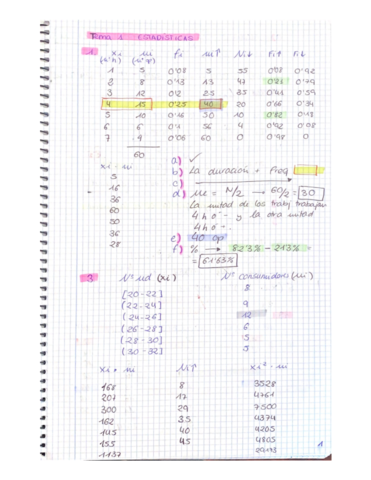 Tema 1 ESTADÍSTICAS
1. xi ni fi ni↑ Ni↓ Fi↑ Fi↓
(nºh) (nºop)
1 5 0'08 5 55 0'08 0'92
2 8 0'13 13 47 0'21 0'79
3 12 0'2 25 35 0'41 0'59
4 15 0'25 40 20 0'66 0'34
5 10 0'16 50 10 0'82 0'18
6 6 0'1 56 4 0'92 0'08
7 4 0'06 60 0 0'98 0
60
xi · ni
5
16
36
60
50
36
28
a) ✓
b) La duración + Freq
c)
d) Me = N/2 → 60/2 = 30
La mitad de los trabj trabajan
4 h o - y la otra mitad
4 h o +.
e) 40 op
f) % → 82'3% - 21'3% =
= 61'63%
3 Nº ud (xi) Nº consumidores (ni)
[20-22] 8
(22-24] 9
(24-26] 12
(26-28] 6
(28-30] 5
(30-32] 5
xi · ni Ni↑ xi² · ni
168 8 3528
207 17 4761
300 29 7500
162 35 4374
145 40 4205
155 45 4805
1137 29173
1